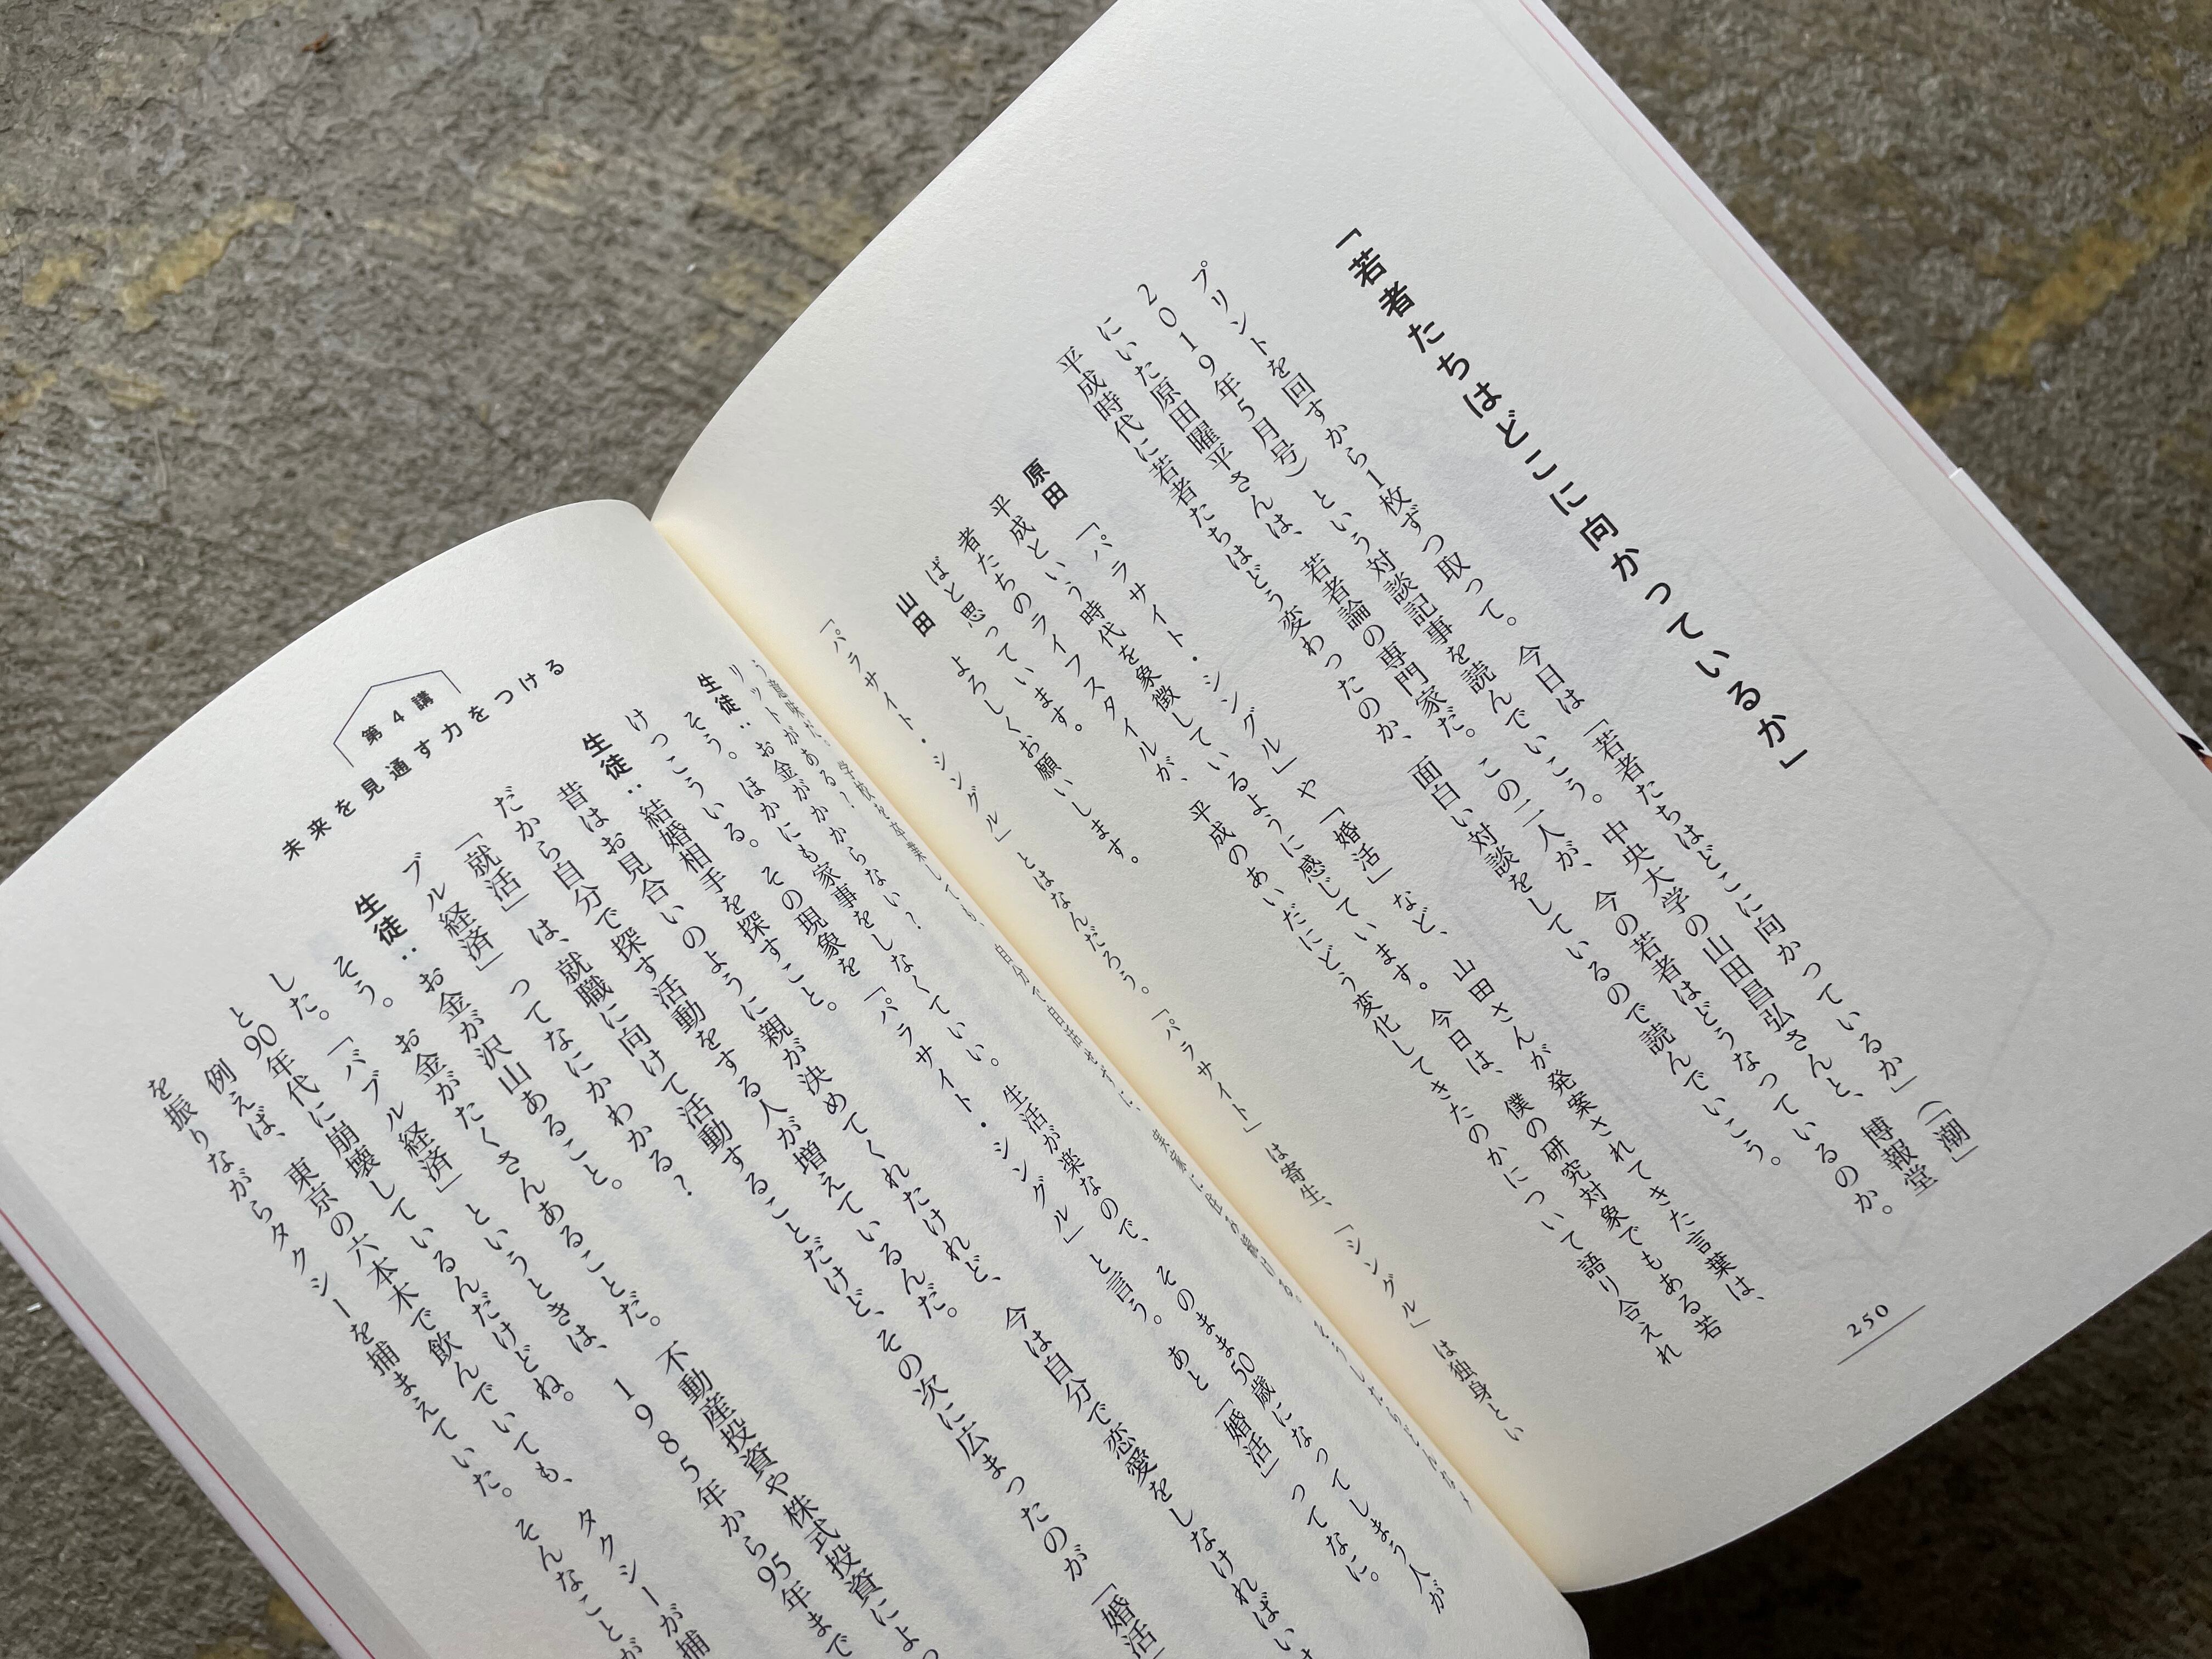 「若者たちはどこに向かっているか」
プリントを回すから1枚ずつ取って。今日は「若者たちはどこに向かっているか」(「潮」
2019年5月号)という対談記事を読んでいこう。中央大学の山田昌弘さんと、博報堂
にいた原田曜平さんは、若者論の専門家だ。この二人が、今の若者はどうなっているのか。
平成時代に若者たちはどう変わったのか、面白い対談をしているので読んでいこう。
原田 「パラサイト・シングル」や「婚活」など、山田さんが発案されてきた言葉は、
平成という時代を象徴しているように感じています。今日は、僕の研究対象でもある若
者たちのライフスタイルが、平成のあいだにどう変化してきたのかについて語り合えれ
ばと思っています。
山田 よろしくお願いします。
「パラサイト・シングル」とはなんだろう。「パラサイト」は寄生、「シングル」は独身とい
250
う意味だ。学校を卒業しても、自分で自活せずに、実家に住み続ける。そうしたらどんなメ
リットがある?
生徒:お金がかからない?
そう。ほかにも家事をしなくていい。生活が楽なので、そのまま50歳になってしまう人が
けっこういる。その現象を「パラサイト・シングル」と言う。あと「婚活」ってなに。
生徒:結婚相手を探すこと。
昔はお見合いのように親が決めてくれたけれど、今は自分で恋愛をしなければい
だから自分で探す活動をする人が増えているんだ。
「就活」は、就職に向けて活動することだけど、その次に広まったのが「婚活」
ブル経済」ってなにかわかる?
生徒:お金が沢山あること。
そう。お金がたくさんあることだ。不動産投資や株式投資によっ
した。「バブル経済」というときは、1985年から95年まで
と90年代に崩壊しているんだけどね。
例えば、東京の六本木で飲んでいても、タクシーが捕
を振りながらタクシーを捕まえていた。そんなことが
第4講
未来を見通す力をつける